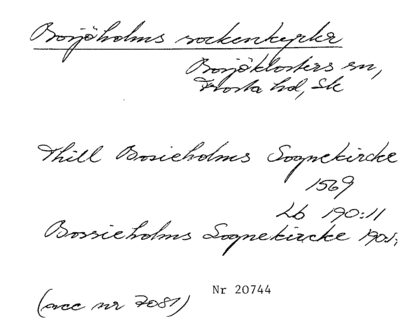 Bosjöholms sockenkyrka
Bosjöklosters sn,
Frosta hd, Sk
Thill Bosieholms Sognekircke
1569
Lb 190:11
Bossieholms Sognekircke 190:1,
Nr 20744
(acc nr 7081)